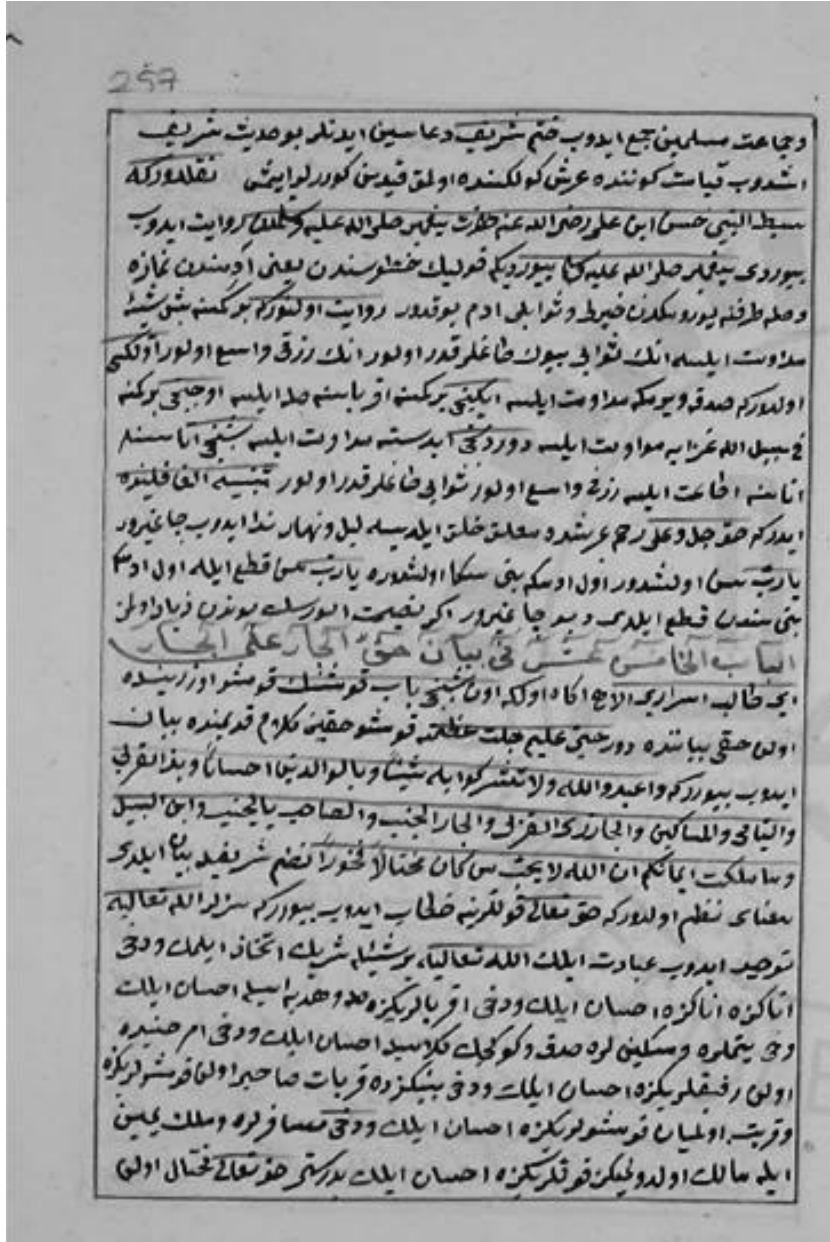 257
وجماعت مسلمين جمع ايدوب ختم شريف دعاسين ايدنلر بو حديث شريف
اشدوب قيامت كوننده عرش كولكسنده اولمق قيدين كوررلر ايمش نقلدوركه
سبط النبى حسن ابن على رضى الله عنه حضرت پيغمبر صلى الله عليه روايت ايدوب
بيوردى پيغمبر صلى الله عليه بيورديكه قوليك خطوسندن يعنى آدمندن نمازه
وصله طرفنه يورومكدن خيرلو وثوابلى ادم يوقدور روايت اولنوركه بر كمسنه بش شيئه
مداومت ايلسه انك ثوابى بيوك طاغلر قدر اولور انك رزقى واسع اولور اولكى
اولدركه صدقه ويرمكه مداومت ايلسه ايكنجى بر كمسنه اقرباسنه صله ايلسه اوچنجى بر كمسنه
فى سبيل الله غزايه مداومت ايلسه دوردنجى ابدسته مداومت ايلسه بشنجى اتاسنه
اناسنه اطاعت ايلسه رزقى واسع اولور ثوابى طاغلر قدر اولور تنبيه الغافلينده
ايدركه حق جل وعلى رحم عرشده معلق خلق ايلديسه ليل ونهار ندا ايدوب چاغيرور
يارب سن اولشدور اول اوسكه بنى سكا اولشدوره يارب سن قطع ايله اول
بنى سندن قطع ايلدى ديو چاغيرور اكر نصيحت الورسك بوندن زياد اولمز
الباب الخامس عشر فى بيان حق الجار على الجار
اى طالب اسرار الاهى اكاه اولكه اون بشنجى باب قوشنك قومشو اوزرينده
اولن حقى بياننده دور حق عليم جلت عظمته قوشو حقين كلام قديمنده بيان
ايدوب بيورركه واعبدوا الله ولا تشركوا به شيئاً وبالوالدين احساناً وبذى القربى
واليتامى والمساكين والجار ذى القربى والجار الجنب والصاحب بالجنب وابن السبيل
وما ملكت ايمانكم ان الله لا يحب من كان مختالاً فخوراً نظم شريفيله بيان ايلدى
معناى نظم اولدركه حق تعالى قوللرينه خطاب ايدوب بيورركه سزلر الله تعاليه
توحيد ايدوب عبادت ايلك الله تعاليه بر شيئله شريك اتخاذ ايلمك ودخى
اتاكزه اناكزه احسان ايلك ودخى اقربالريكزه صله وهديه ايله احسان ايلك
ودخى يتيملره ومسكينلره صدقه وكوكچك كلامله احسان ايلك ودخى
اولن رفيقلريكزه احسان ايلك ودخى بينكزده قربات صاحبى اولن قوشولريكزه
وقريب اولميان قومشولريكزه احسان ايلك ودخى مسافرلره وملك يمين
ايله مالك اولدوغيكز قوللريكزه احسان ايلك بدرستى حق تعالى مختال اولن